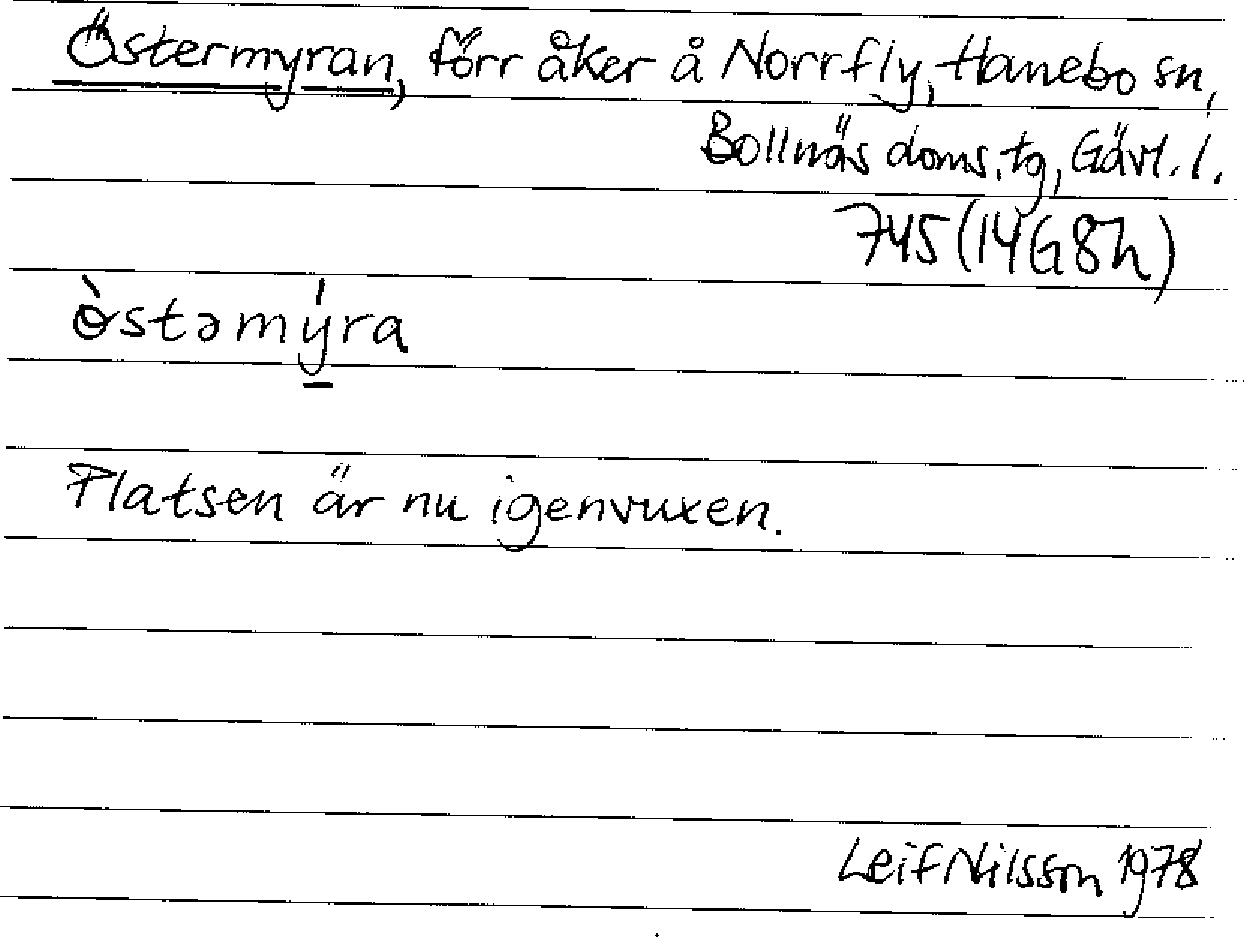 Östermyran, förr åker å Norrfly, Hanebo sn,
Bollnäs doms. tg, Gävl. l.
745 (14G8h)
ɵ̀stəmý̠ra
Platsen är nu igenvuxen.
Leif Nilsson 1978